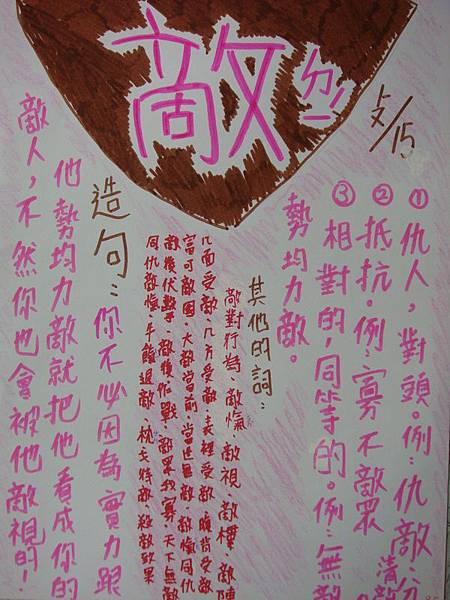 敵 ㄉㄧˊ
攵/15
①仇人，對頭。例：仇敵.
②抵抗。例：寡不敵眾
③相對的，同等的。例：無敵
勢均力敵。
其他的詞：
敵對行為、敵愾、敵視、敵樓、敵陣
几面受敵.几方受敵.表裡受敵.腹背受敵
富可敵國.大敵當前.當世無敵.敵愾同仇
敵後伏擊.敵後作戰.敵眾我寡.天下無敵
同仇敵愾.退敵.枕戈待敵.殺敵致果
造句：你不必因為實力跟
他勢均力敵就把他看成你的
敵人，不然你也會被他敵視的！